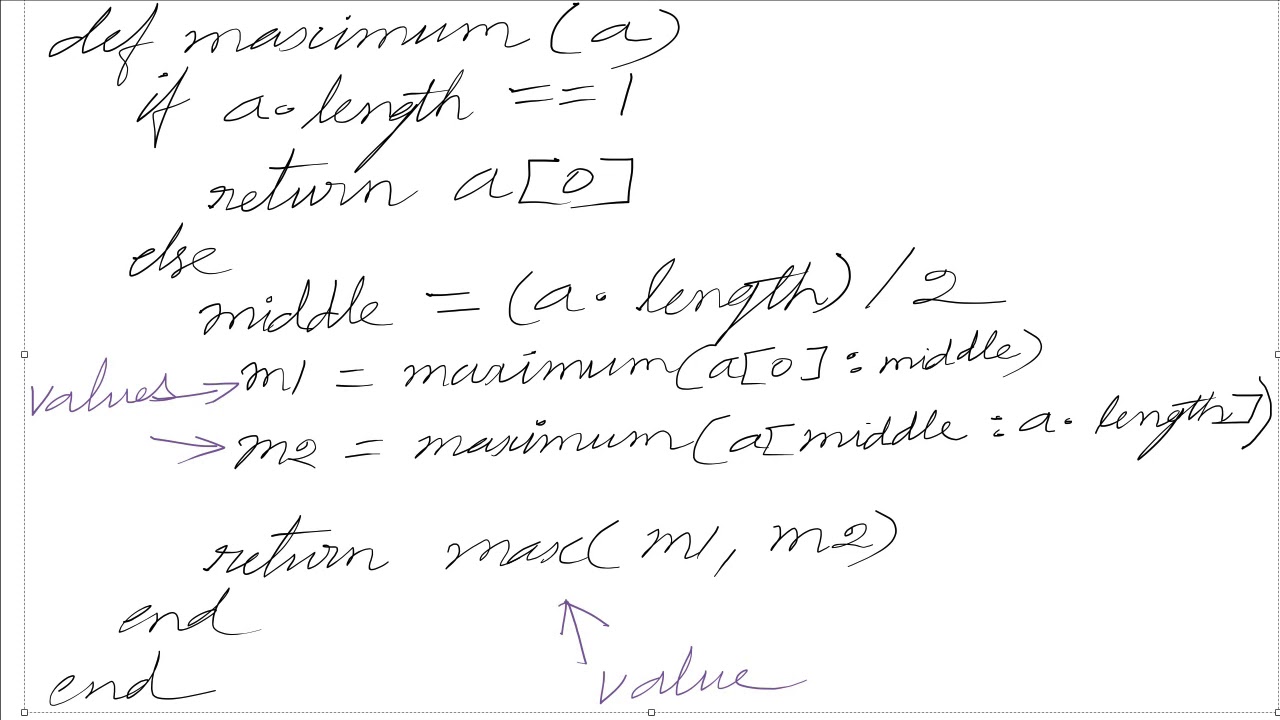 def maximum (a)
if a.length == 1
return a[0]
else
middle = (a.length) / 2
values → m1 = maximum(a[0] : middle)
→ m2 = maximum(a[middle : a.length])
return max( m1, m2)
end
value
end